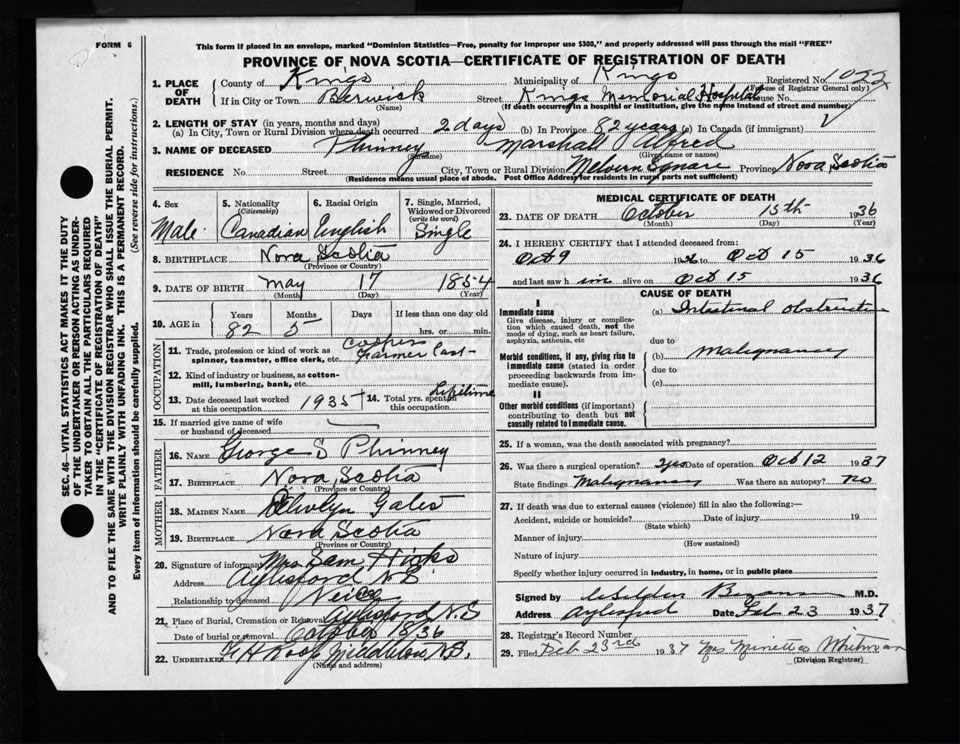 FORM 6
This form if placed in an envelope, marked "Dominion Statistics—Free, penalty for improper use $300," and properly addressed will pass through the mail "FREE"
PROVINCE OF NOVA SCOTIA—CERTIFICATE OF REGISTRATION OF DEATH
1. PLACE OF DEATH County of Kings Municipality of Kings Registered No. 1022
(For use of Registrar General only)
If in City or Town Berwick Street Kings Memorial Hospital House No.
(Name) (If death occurred in a hospital or institution, give the name instead of street and number)
2. LENGTH OF STAY (in years, months and days)
(a) In City, Town or Rural Division where death occurred 2 days (b) In Province 82 years (c) In Canada (if immigrant)
3. NAME OF DECEASED Phinney Marshall Alfred
(Surname) (Given name or names)
RESIDENCE No. Street City, Town or Rural Division Melvern Square Province Nova Scotia
(Residence means usual place of abode. Post Office Address for residents in rural parts not sufficient)
4. Sex 5. Nationality (Citizenship) 6. Racial Origin 7. Single, Married, Widowed or Divorced (write the word)
Male Canadian English Single
8. BIRTHPLACE Nova Scotia
(Province or Country)
9. DATE OF BIRTH May 17 1854
(Month) (Day) (Year)
10. AGE in Years Months Days If less than one day old
82 5 hrs. or min.
OCCUPATION
11. Trade, profession or kind of work as spinner, teamster, office clerk, etc. Cooper Farmer
12. Kind of industry or business, as cotton-mill, lumbering, bank, etc.
13. Date deceased last worked at this occupation 1935 14. Total yrs. spent in this occupation Lifetime
15. If married give name of wife or husband of deceased
FATHER
16. NAME George S Phinney
17. BIRTHPLACE Nova Scotia
(Province or Country)
MOTHER
18. MAIDEN NAME Gates
19. BIRTHPLACE Nova Scotia
(Province or Country)
20. Signature of informant Mrs Sam Hicks
Address Aylesford N.S
Relationship to deceased Neice
21. Place of Burial, Cremation or Removal Aylesford N.S
Date of burial or removal October 1936
22. UNDERTAKER Middleton N.S.
(Name and address)
MEDICAL CERTIFICATE OF DEATH
23. DATE OF DEATH October 15th 1936
(Month) (Day) (Year)
24. I HEREBY CERTIFY that I attended deceased from:
Oct 9 1936 to Oct 15 1936
and last saw him alive on Oct 15 1936
CAUSE OF DEATH
I
Immediate cause
Give disease, injury or complication which caused death, not the mode of dying, such as heart failure, asphyxia, asthenia, etc
(a) Intestinal obstruction
due to
Morbid conditions, if any, giving rise to immediate cause (stated in order proceeding backwards from immediate cause).
(b) Malignancy
due to
(c)
II
Other morbid conditions (if important) contributing to death but not causally related to immediate cause.
25. If a woman, was the death associated with pregnancy?
26. Was there a surgical operation? Yes Date of operation Oct 12 1937
State findings Malignancy Was there an autopsy? no
27. If death was due to external causes (violence) fill in also the following:—
Accident, suicide or homicide? Date of injury 19
(State which)
Manner of injury
(How sustained)
Nature of injury
Specify whether injury occurred in industry, in home, or in public place
Signed by M.D.
Address Aylesford Date Feb 23 1937
28. Registrar's Record Number
29. Filed Feb 23rd 1937 Mrs Minetta Whitman
(Division Registrar)
SEC. 46—VITAL STATISTICS ACT MAKES IT THE DUTY
OF THE UNDERTAKER OR PERSON ACTING AS UNDER-
TAKER TO OBTAIN ALL THE PARTICULARS REQUIRED
IN THE "CERTIFICATE OF REGISTRATION OF DEATH"
AND TO FILE THE SAME WITH THE DIVISION REGISTRAR WHO SHALL ISSUE THE BURIAL PERMIT.
WRITE PLAINLY WITH UNFADING INK. THIS IS A PERMANENT RECORD.
Every item of information should be carefully supplied. (See reverse side for instructions.)